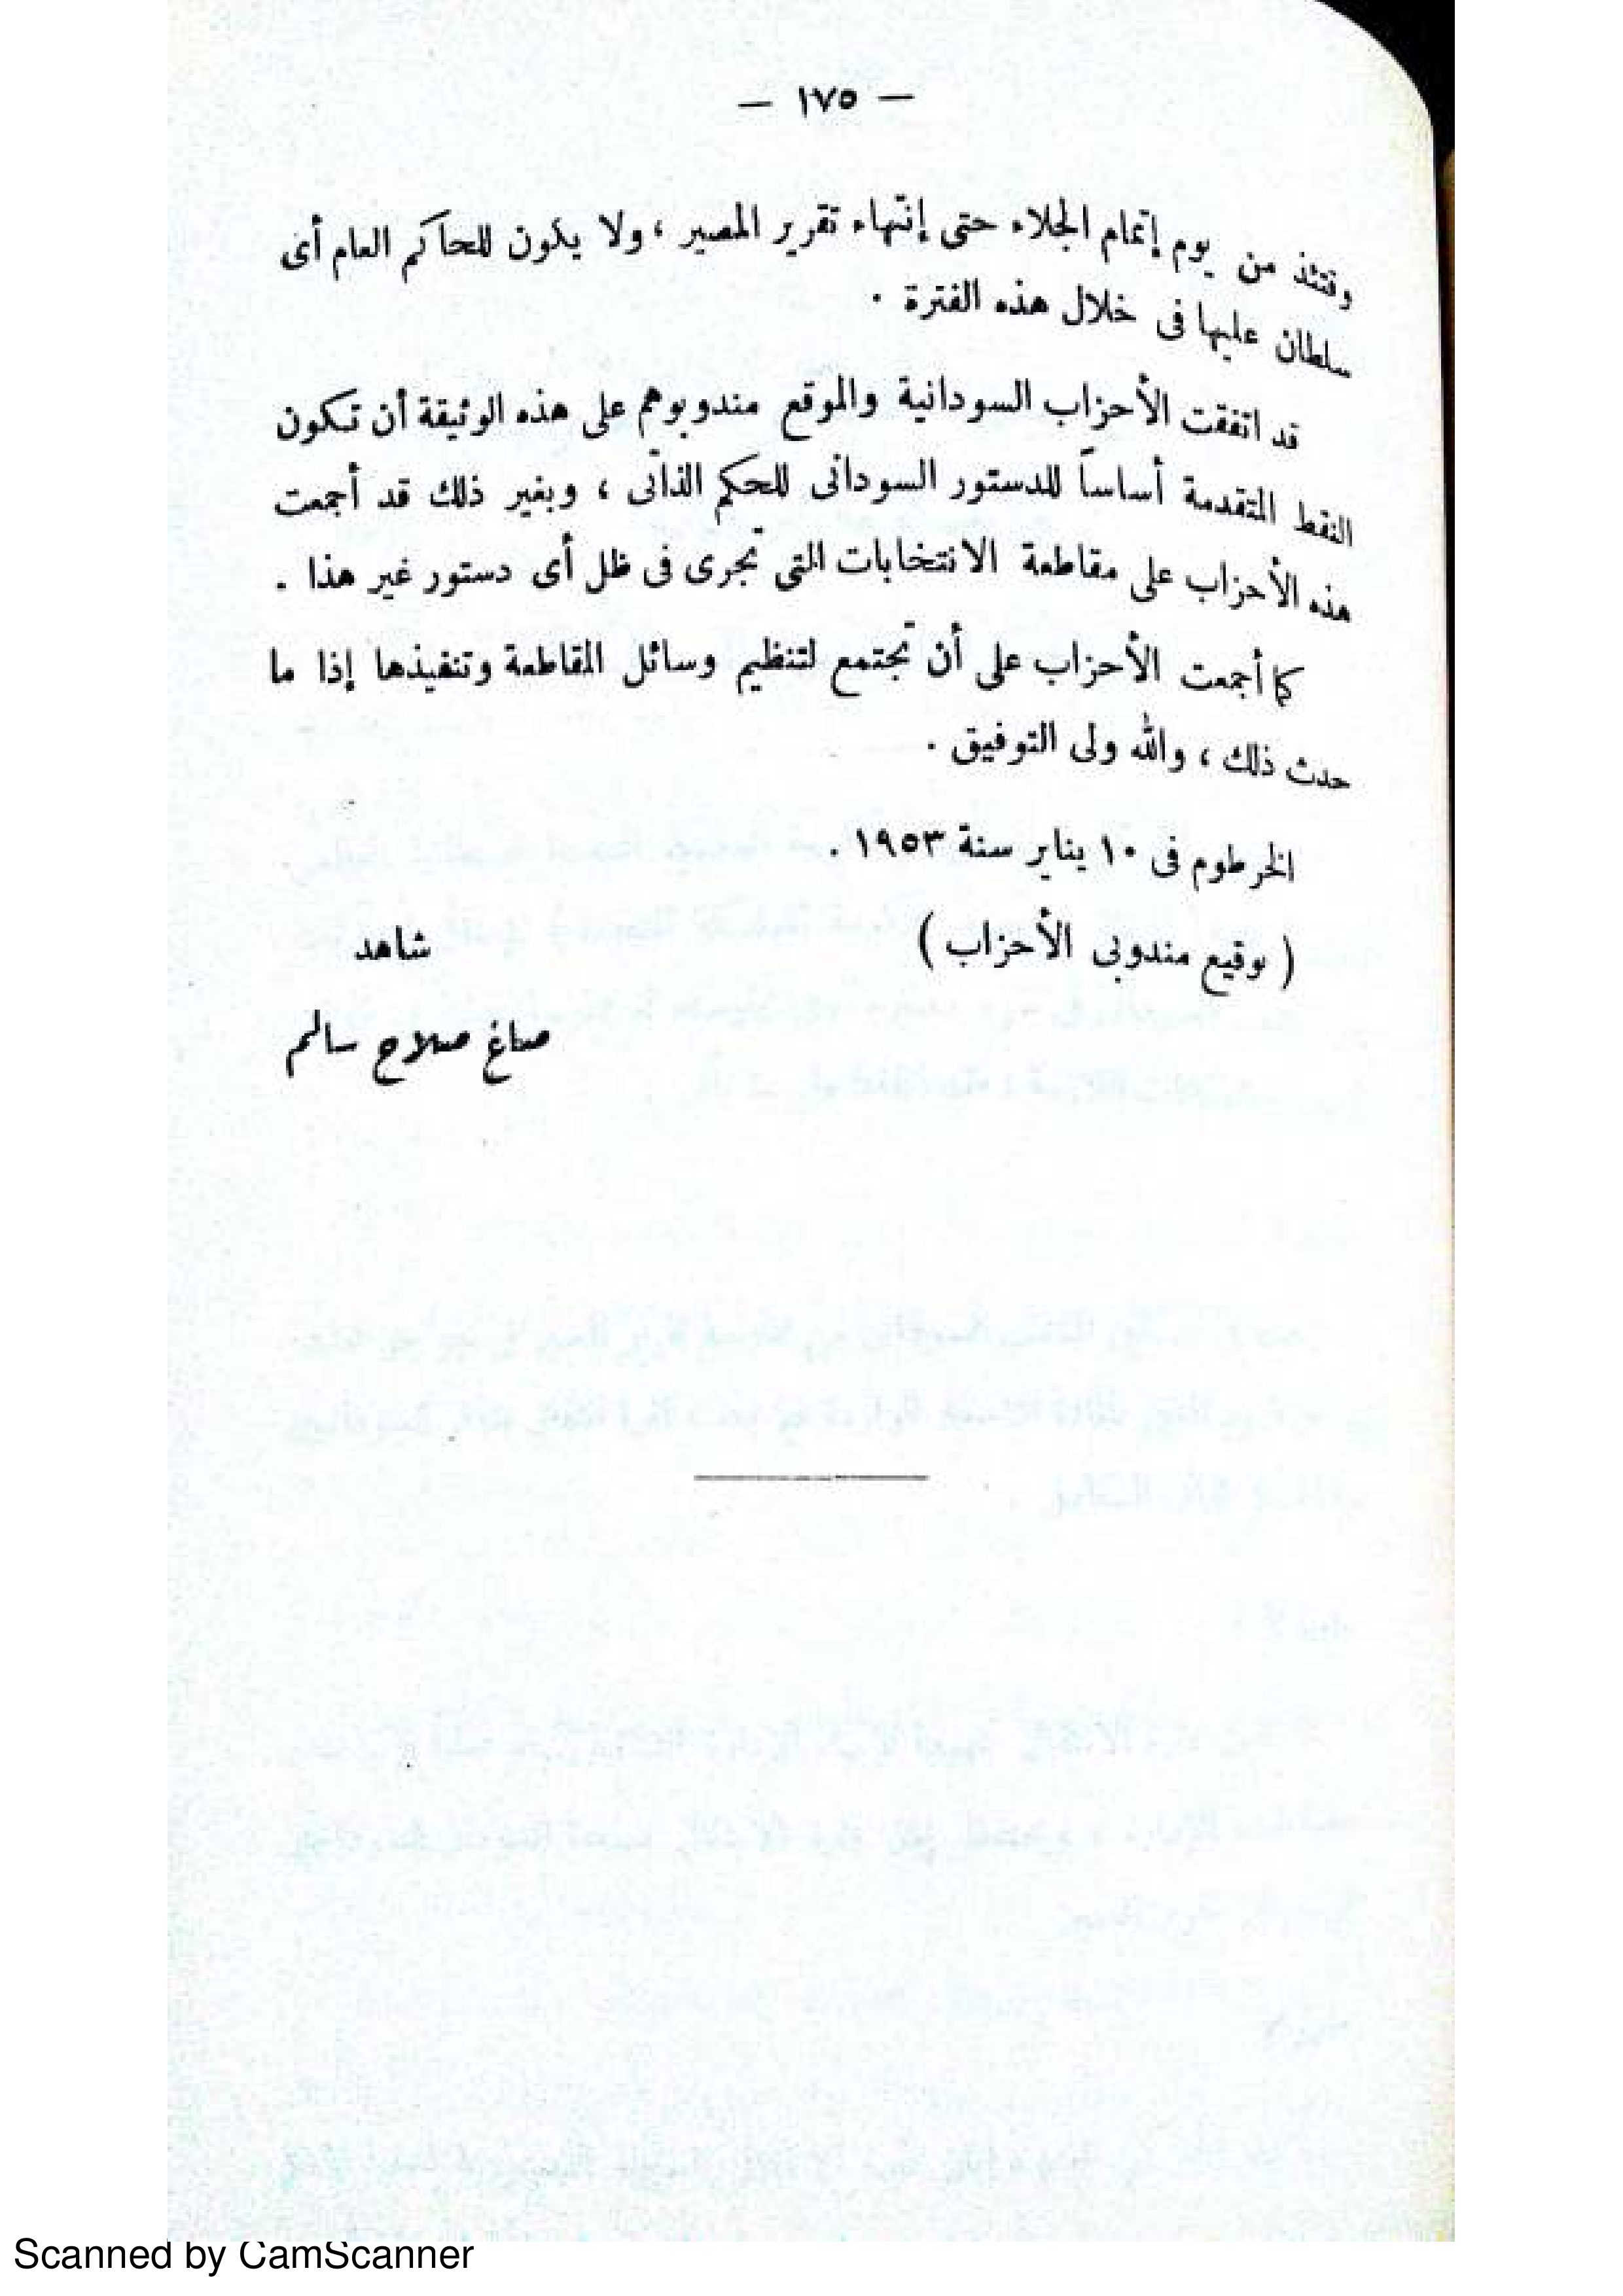 — ١٧٥ —
وقتئذ من يوم إتمام الجلاء حتى إنتهاء تقرير المصير ، ولا يكون للحاكم العام أى
سلطان عليها فى خلال هذه الفترة .
قد اتفقت الأحزاب السودانية والموقع مندوبوهم على هذه الوثيقة أن تكون
النقط المتقدمة أساساً للدستور السودانى للحكم الذاتى ، وبغير ذلك قد أجمعت
هذه الأحزاب على مقاطعة الانتخابات التى تجرى فى ظل أى دستور غير هذا .
كما أجمعت الأحزاب على أن تجتمع لتنظيم وسائل المقاطعة وتنفيذها إذا ما
حدث ذلك ، والله ولى التوفيق .
الخرطوم فى ١٠ يناير سنة ١٩٥٣ .
( توقيع مندوبى الأحزاب ) شاهد
صاغ صلاح سالم
Scanned by CamScanner